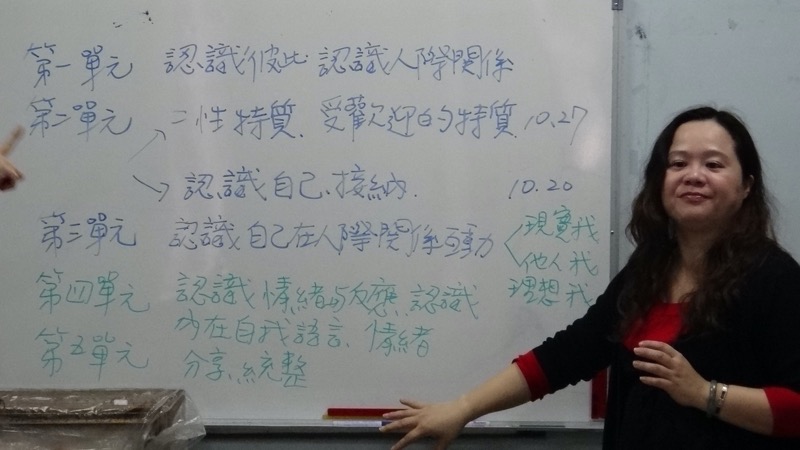 第一單元 認識彼此 認識人際關係
第二單元 二性特質、受歡迎的特質 10.27
認識自己、接納 10.20
第三單元 認識自己在人際關係互動 現實我
他人我
理想我
第四單元 認識情緒與反應、認識
內在自我語言、情緒
第五單元 分享、統整